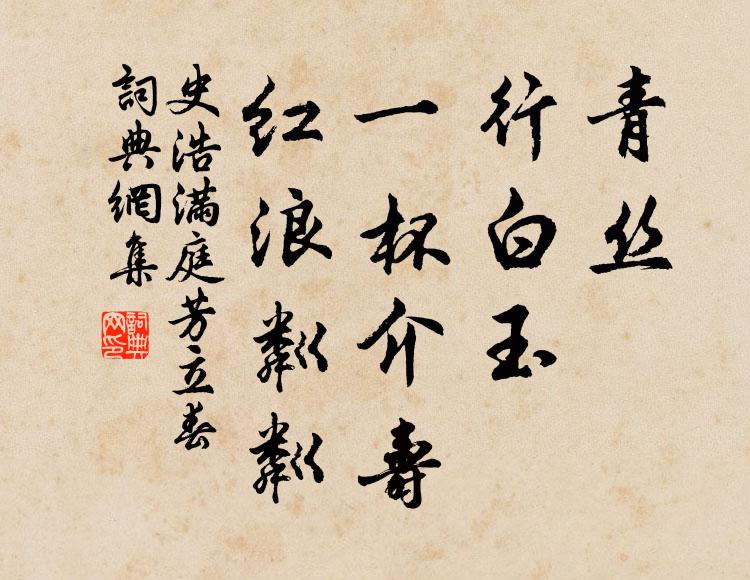 青丝
行白玉
一杯介壽
红浪粼粼
史浩满庭芳立春
詞典網集
詞典網印